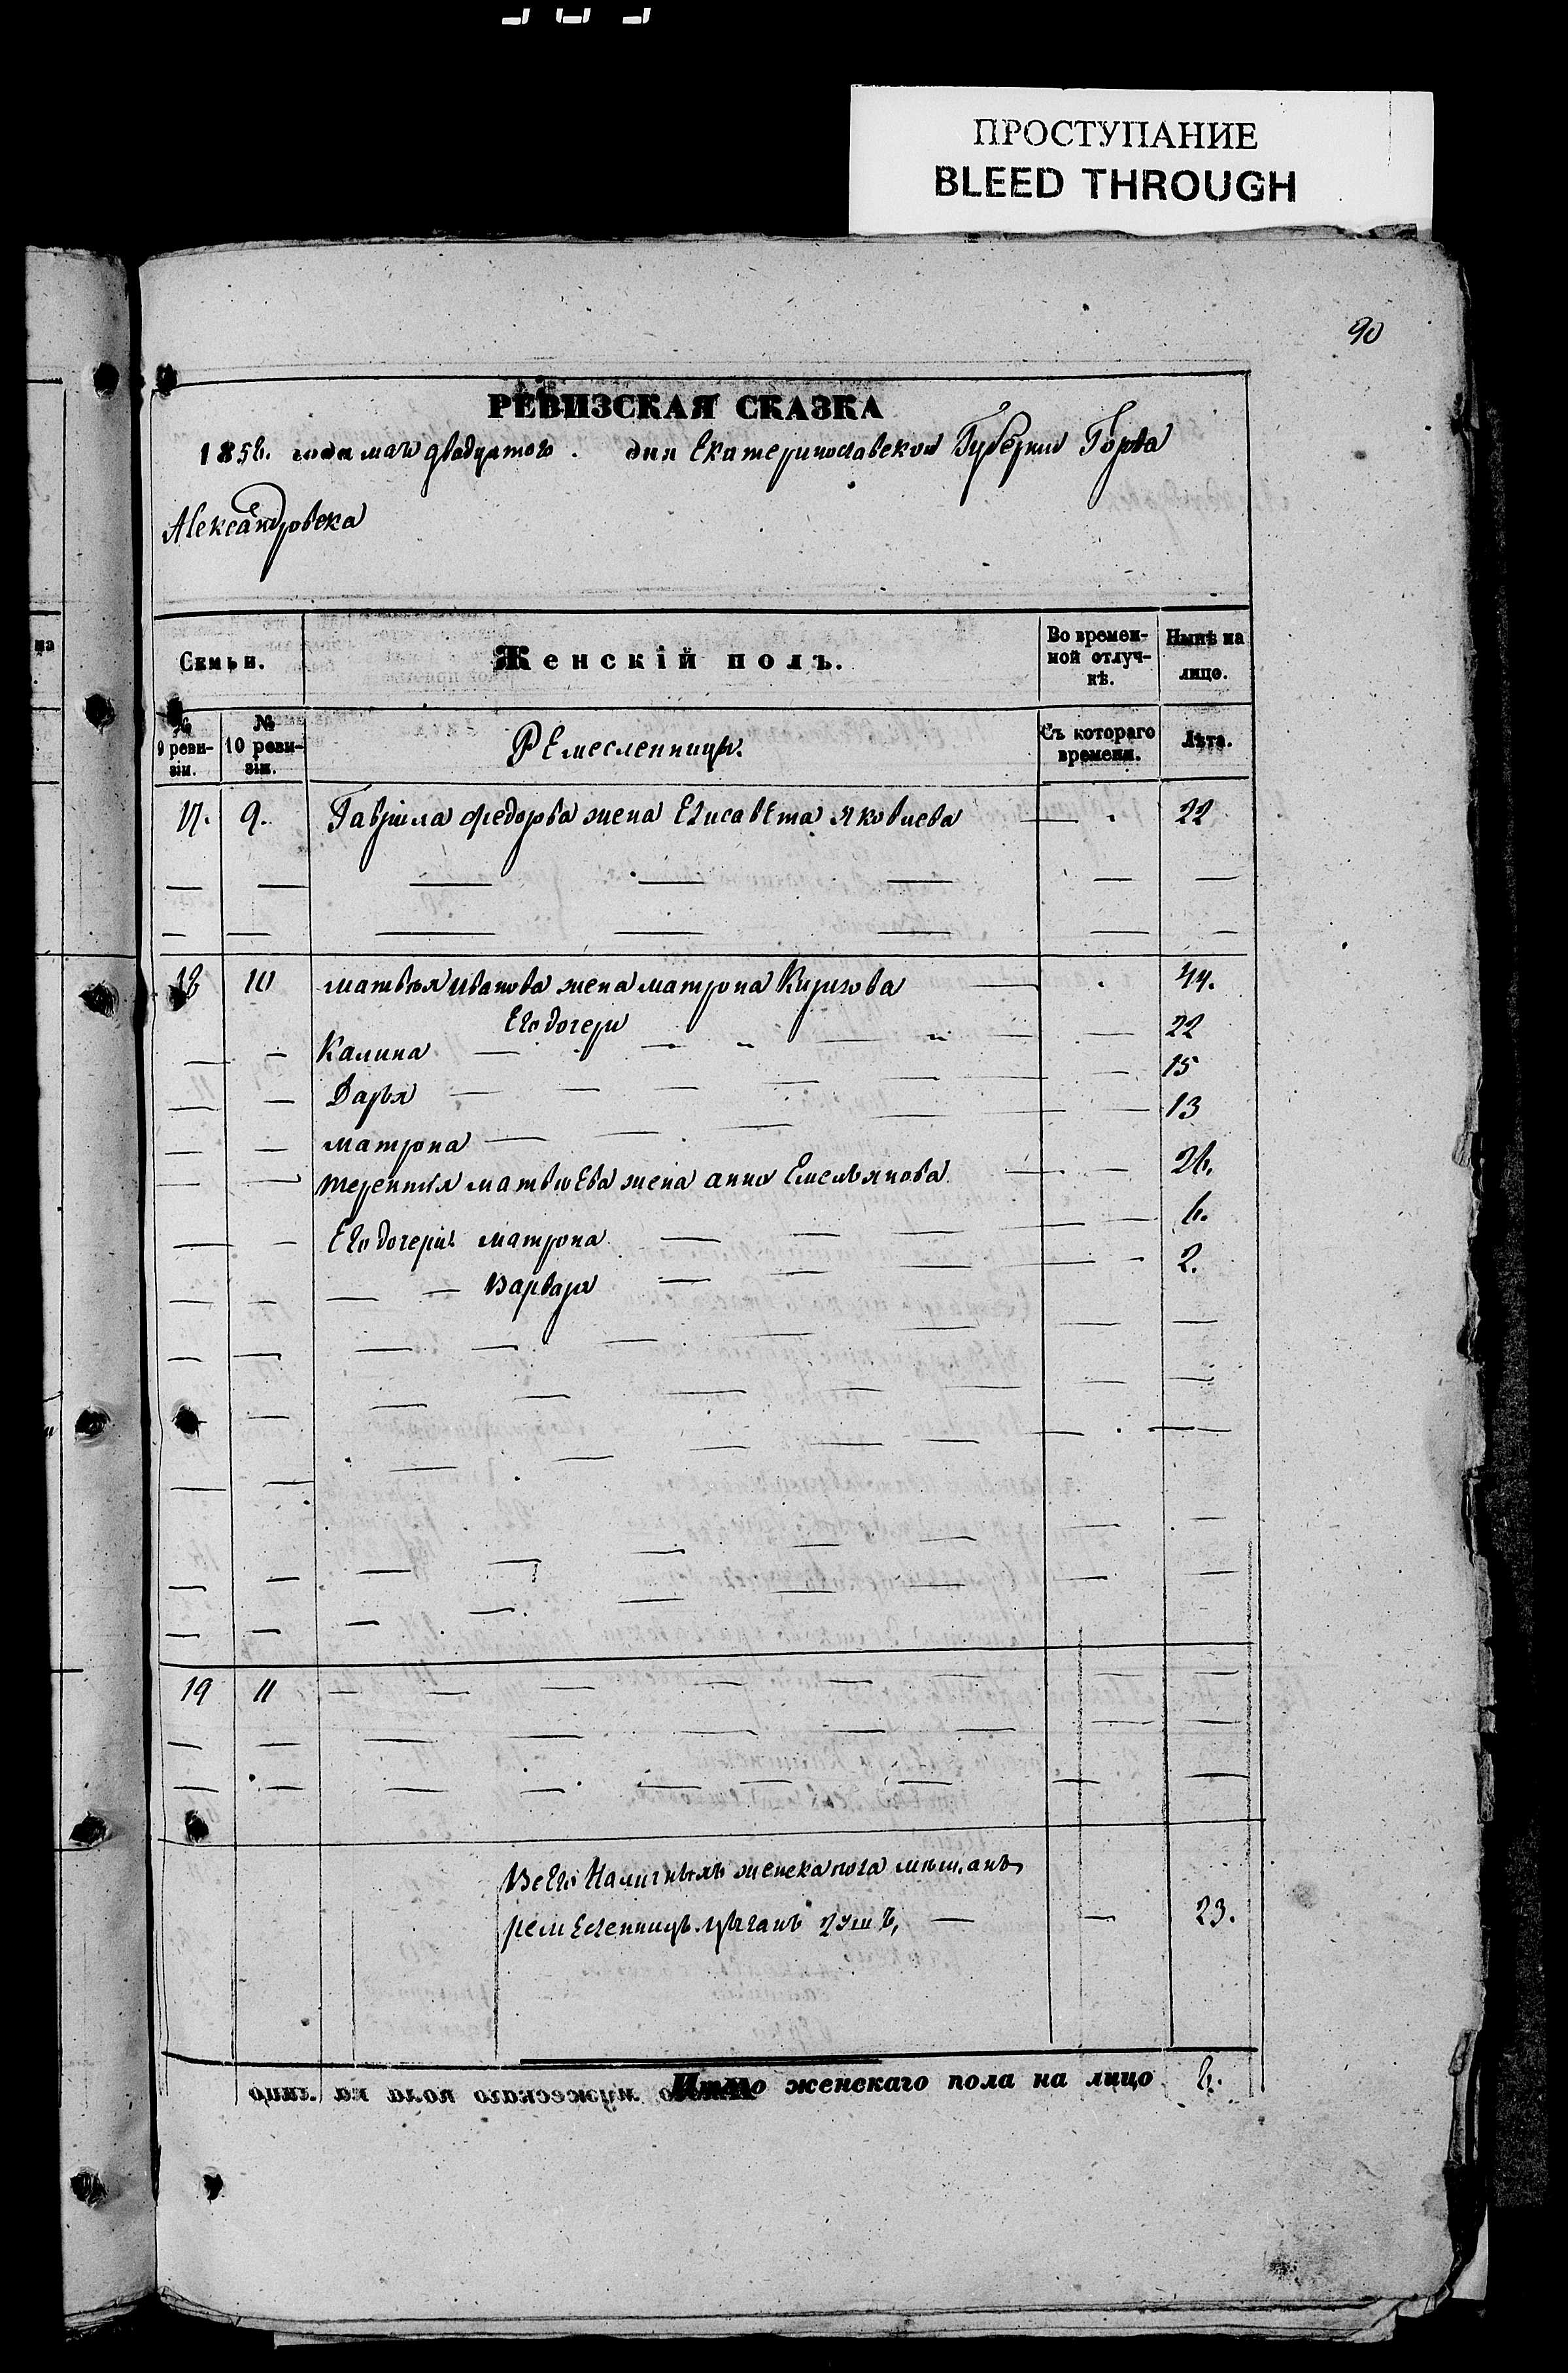 ПРОСТУПАНИЕ
BLEED THROUGH
90
РЕВИЗСКАЯ СКАЗКА
1856. года мая двадцатого дня Екатеринославской Губернии Города
Александровска
Семьи. Женскій полъ. Во времен-ной отлуч-кѣ. Нынѣ на лицо.
№ 9 реви-зіи. № 10 реви-зіи. Ремесленницы. Съ котораго времени. Лѣта.
17. 9. Гаврила Федорова жена Елисавета Яковлева — 22
18 10 Матвѣя Иванова жена Матрона — 44.
Его дочери
Калина — 22
Дарья — 15
Матрона — 13
Терентія Матвѣева жена Анна Емельянова — 26.
Его дочери Матрона — 6.
— Варвара — 2.
19 11
Всего Наличныхъ женска пола мѣщанъ
ремесленницъ цыганъ душъ, — 23.
Итого женскаго пола на лицо